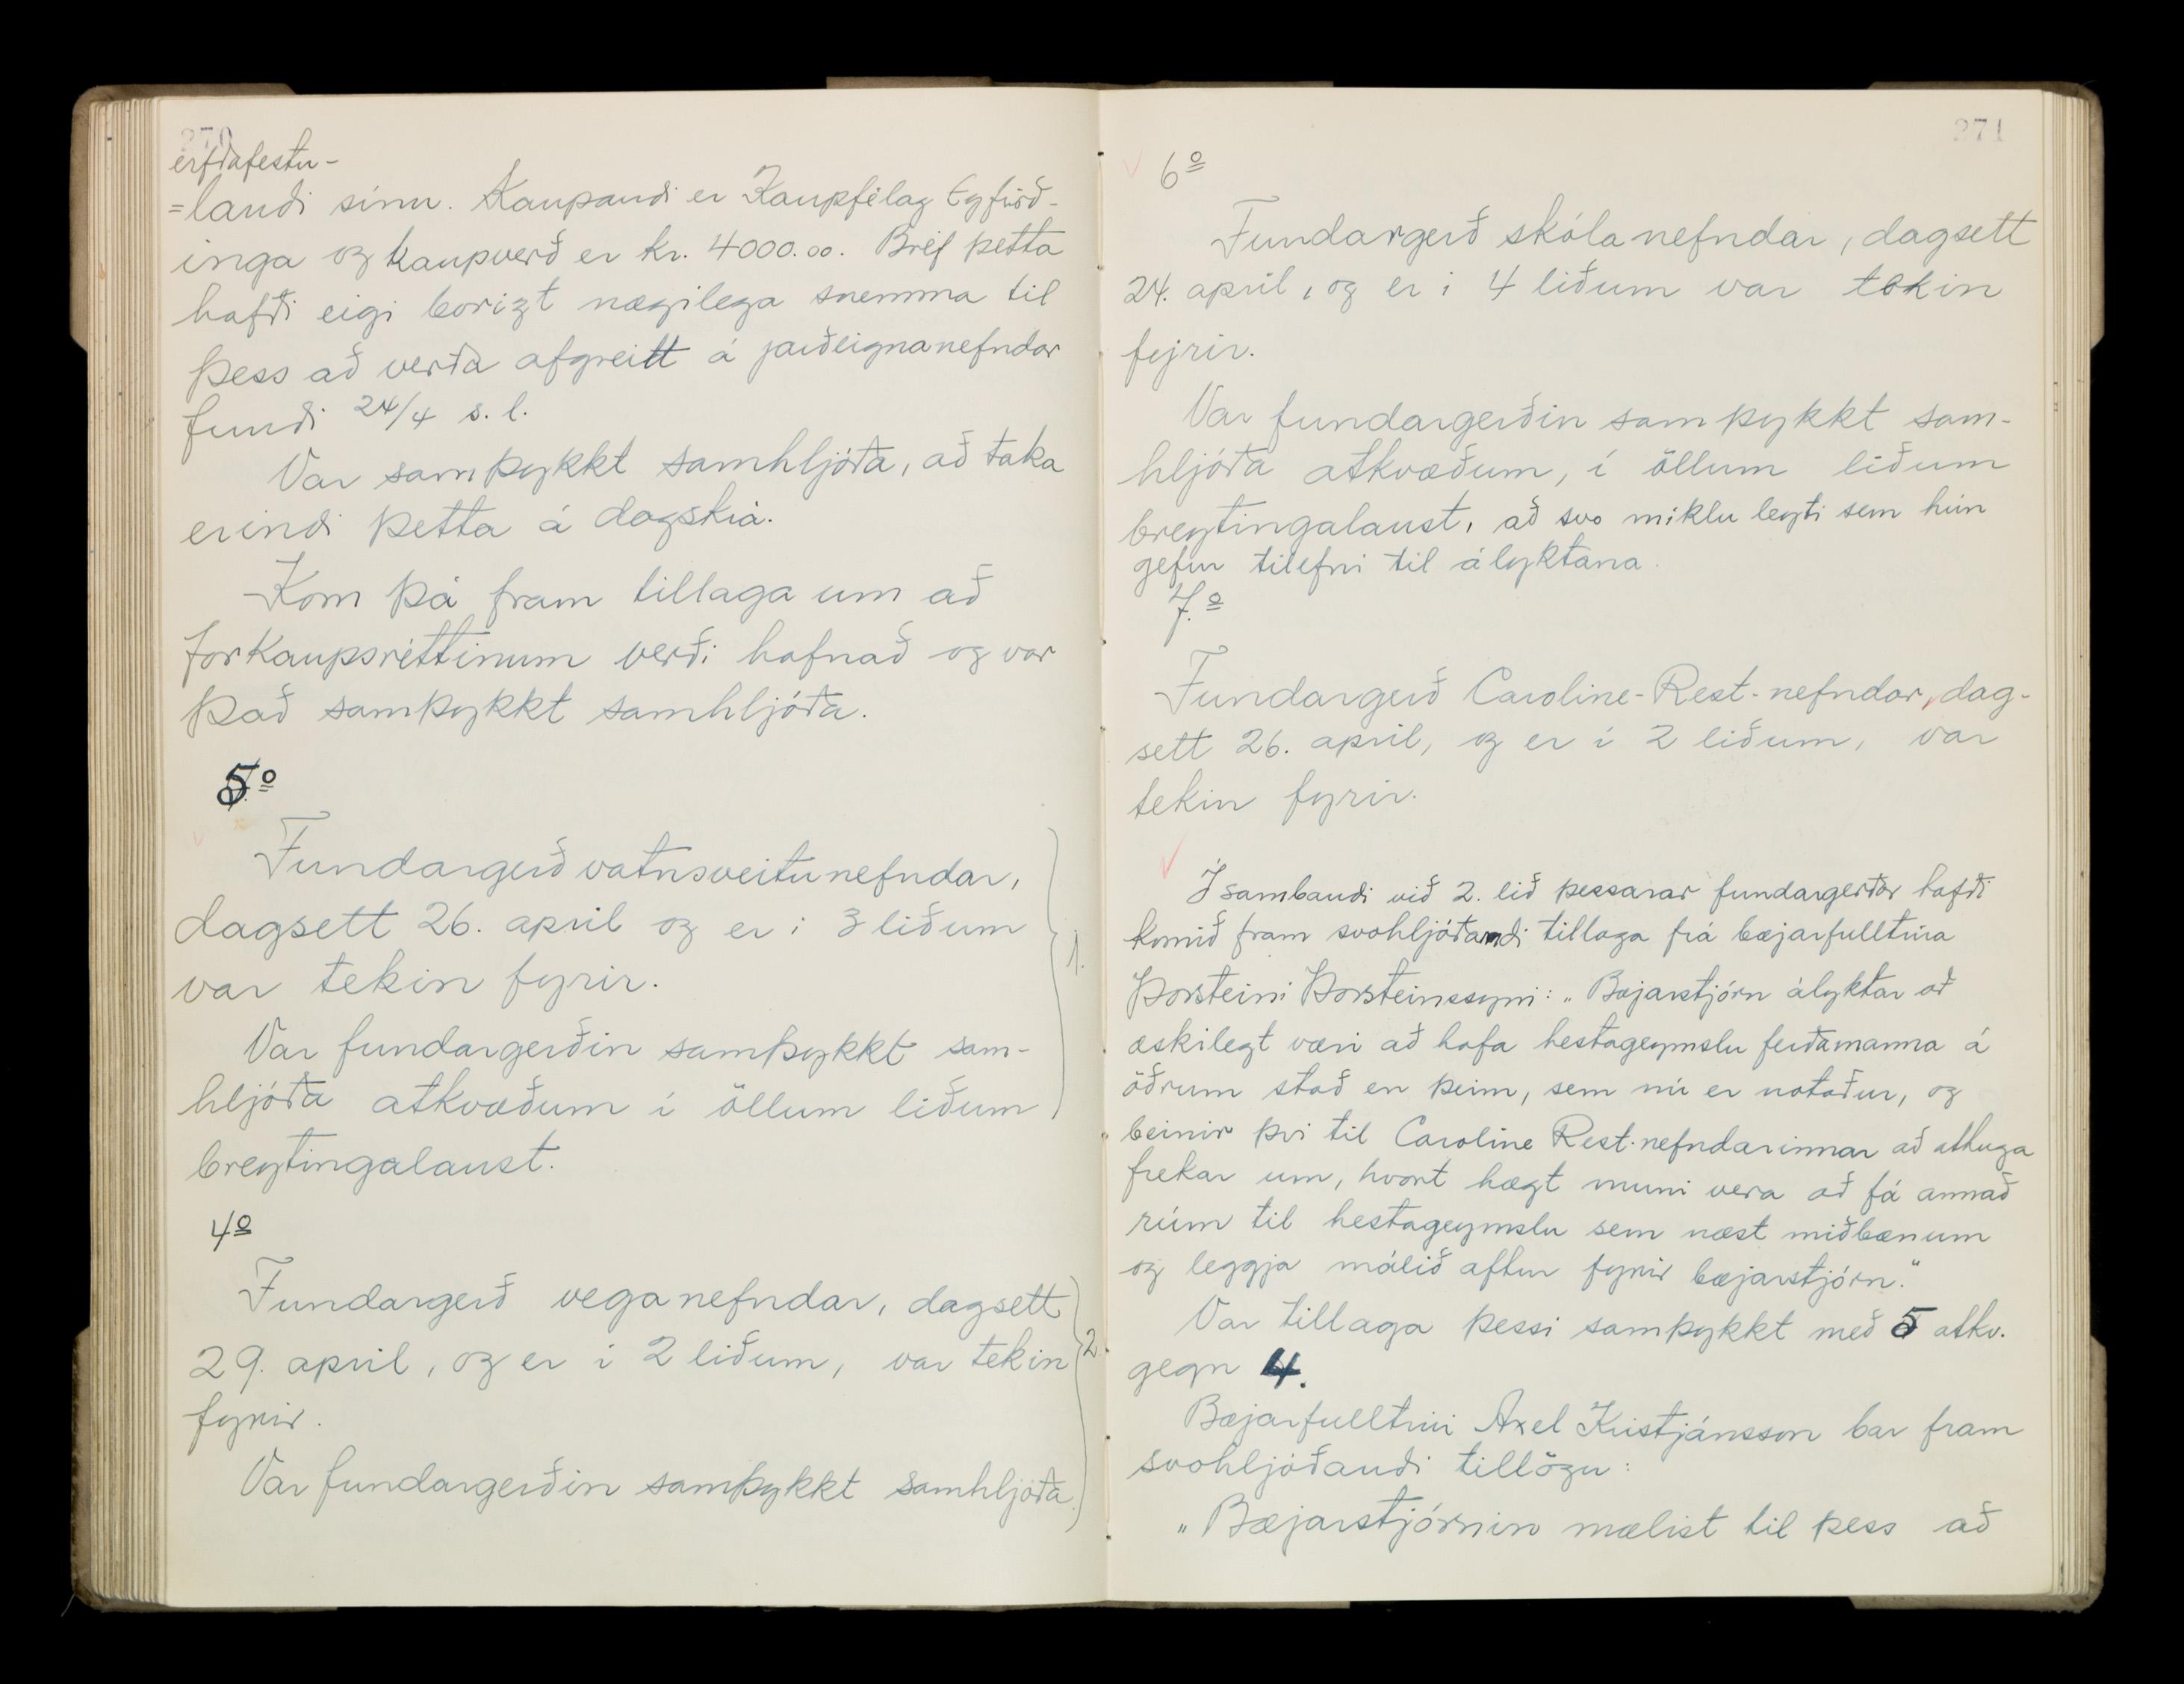 270
erfðafestu-
=landi sínu. Kaupandi er Kaupfélag Eyfirð-
inga og kaupverð er kr. 4000.00. Bréf þetta
hafði eigi borizt nægilega snemma til
þess að verða afgreitt á jarðeignanefndar
fundi 24/4 s.l.
Var samþykkt samhljóða, að taka
erindi þetta á dagskrá.
Kom þá fram tillaga um að
forkaupsréttinum verði hafnað og var
það samþykkt samhljóða.
5º
Fundargerð vatnsveitunefndar,
dagsett 26. apríl og er í 3 liðum
var tekin fyrir.
1.
Var fundargerðin samþykkt sam-
hljóða atkvæðum í öllum liðum
breytingalaust.
4º
Fundargerð veganefndar, dagsett
29. apríl, og er í 2 liðum, var tekin
2.
fyrir.
Var fundargerðin samþykkt samhljóða.
271
6º
Fundargerð skólanefndar, dagsett
24. apríl, og er í 4 liðum var tekin
fyrir.
Var fundargerðin samþykkt sam-
hljóða atkvæðum, í öllum liðum
breytingalaust, að svo miklu leyti sem hún
gefur tilefni til ályktana.
7.º
Fundargerð Caroline-Rest-nefndar, dag-
sett 26. apríl, og er í 2 liðum, var
tekin fyrir.
Í sambandi við 2. lið þessarar fundargerðar hafði
komið fram svohljóðandi tillaga frá bæjarfulltrúa
Þorsteini Þorsteinssyni: „Bæjarstjórn ályktar að
æskilegt væri að hafa hestageymslu ferðamanna á
öðrum stað en þeim, sem nú er notaður, og
beinir því til Caroline Rest-nefndarinnar að athuga
frekar um, hvort hægt muni vera að fá annað
rúm til hestageymslu sem næst miðbænum
og leggja málið aftur fyrir bæjarstjórn."
Var tillaga þessi samþykkt með 5 atkv.
gegn 4.
Bæjarfulltrúi Axel Kristjánsson bar fram
svohljóðandi tillögu:
„Bæjarstjórnin mælist til þess að